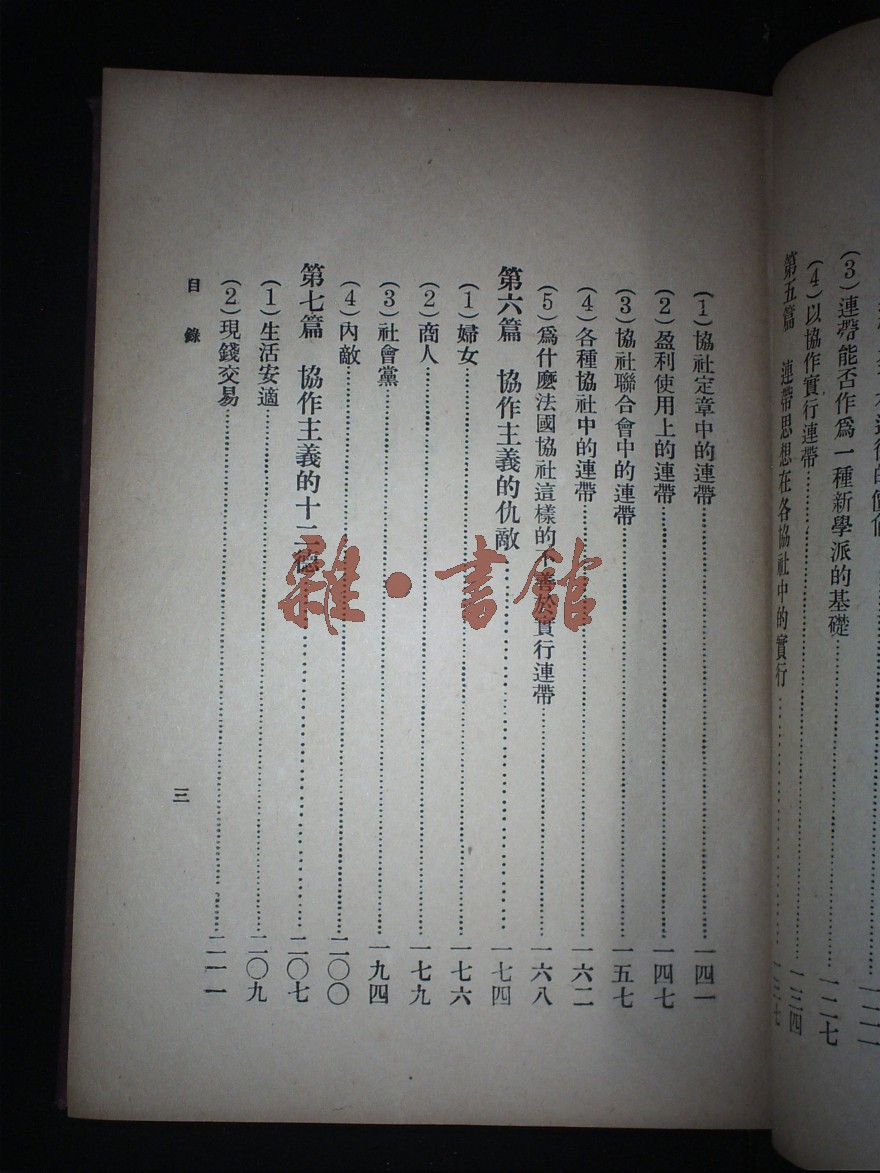 (3)連帶能否作爲一種新學派的基礎……一二七
(4)以協作實行連帶……一三四
第五篇　連帶思想在各協社中的實行……一三七
(1)協社定章中的連帶……一四一
(2)盈利使用上的連帶……一四七
(3)協社聯合會中的連帶……一五七
(4)各種協社中的連帶……一六二
(5)爲什麽法國協社這樣的不善於實行連帶……一六八
第六篇　協作主義的仇敵……一七四
(1)婦女……一七六
(2)商人……一七九
(3)社會黨……一九四
(4)內敵……二〇〇
第七篇　協作主義的十二德……二〇七
(1)生活安適……二〇九
(2)現錢交易……二一一
目錄
三
雜·書館